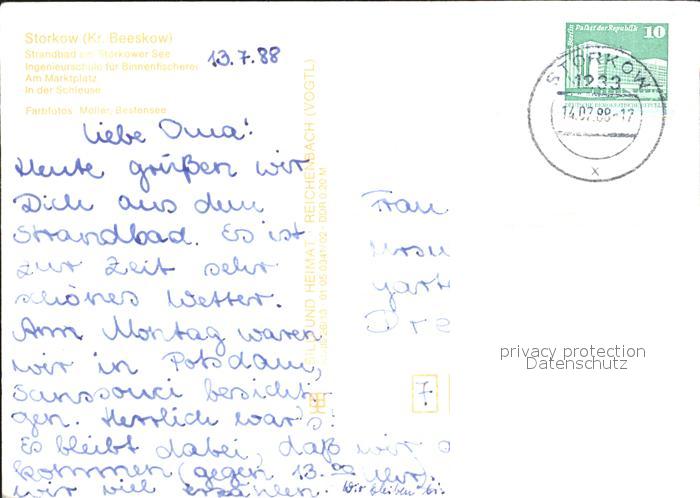 Storkow (Kr. Beeskow)
Strandbad am Storkower See
Ingenieurschule für Binnenfischerei
Am Marktplatz
In der Schleuse
Farbfotos Möller, Bestensee
13.7.88
Liebe Oma!
Heute grüßen wir
Dich aus dem
Strandbad. Es ist
zur Zeit sehr
schönes Wetter.
Am Montag waren
wir in Potsdam,
Sanssouci besichti-
gen. Herrlich war's!
Es bleibt dabei, daß wir
kommen (gegen 13.00 Uhr).
wir viel erzählen. Wir bleiben bis
BILD UND HEIMAT REICHENBACH (VOGTL)
01 05 0341/02 DDR 0,20 M
Berlin Palast der Republik
10
DEUTSCHE DEMOKRATISCHE REPUBLIK
STORKOW
1233
14.07.88-17
x
Frau
Ursu
Gart
Dre
7
privacy protection
Datenschutz